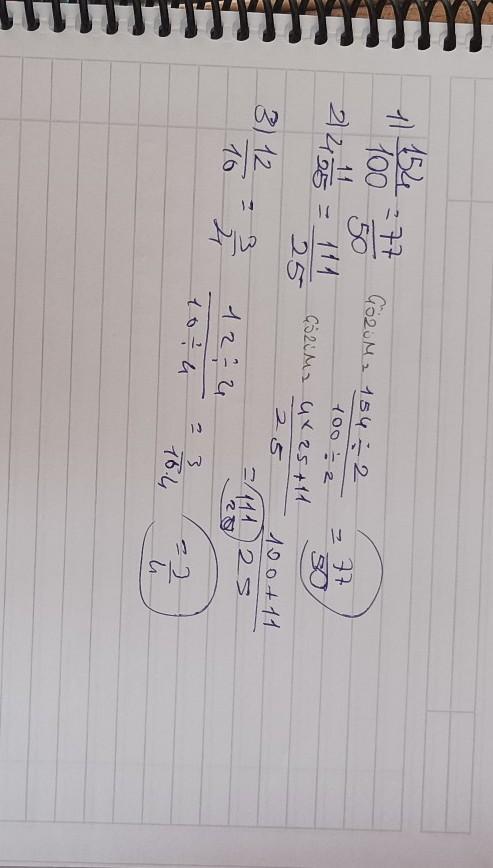 1) 154/100 = 77/50 Gözüm = 154÷2/100÷2 = 77/50
2) 4 11/25 = 111/25 Gözüm = 4x25+11/25 100+11/25
= 111/25
3) 12/16 = 3/4 12÷4/16÷4 = 3/16.4 = 3/4